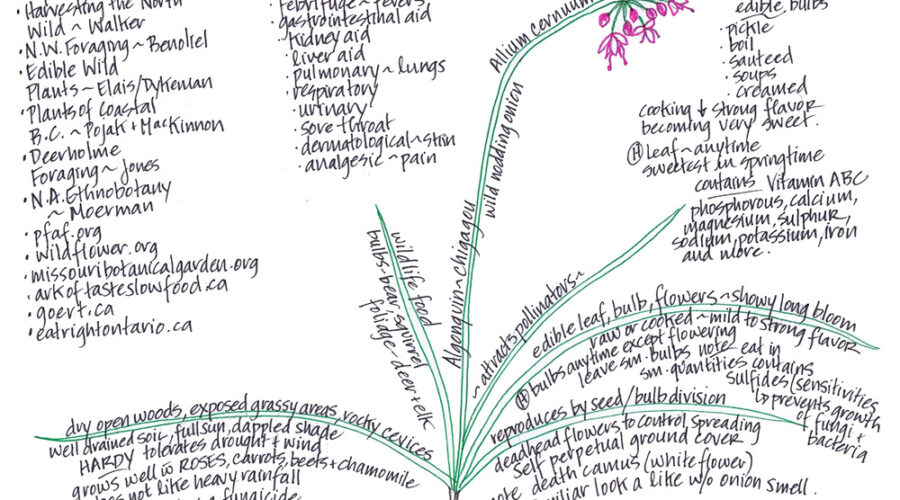 • Harvesting the North
Wild ~ Walker
• N.W. Foraging ~ Benoliel
• Edible Wild
Plants ~ Elais/Dykeman
• Plants of Coastal
B.C. ~ Pojak + MacKinnon
• Deerholme
Foraging ~ Jones
• N.A. Ethnobotany
~ Moerman
• pfaf.org
• wildflower.org
• missouribotanicalgarden.org
• arkoftasteslowfood.ca
• goert.ca
• eatrightontario.ca
febrifuge ~ fevers
• gastrointestinal aid
• kidney aid
• liver aid
• pulmonary ~ lungs
• respiratory
• urinary
• sore throat
• dermatological ~ skin
• analgesic ~ pain
Allium cernuum
wild nodding onion
Algonquin ~ chigagou
edible bulbs
• pickle
• boil
• sauteed
• soups
• creamed
cooking ↓ strong flavor
becoming very sweet.
(H) Leaf ~ anytime
sweetest in springtime
contains Vitamin ABC
phosphorous, calcium,
magnesium, sulphur,
sodium, potassium, iron
and more.
wildlife food
bulbs ~ bear, squirrel
foliage ~ deer + elk
~ attracts pollinators ~
edible leaf, bulb, flowers ~ showy long bloom
raw or cooked ~ mild to strong flavor
(H) bulbs anytime except flowering
leave sm. bulbs note eat in
sm. quantities contains
sulfides (sensitivities
↳ prevents growth
of fungi +
bacteria
reproduces by seed/bulb division
deadhead flowers to control spreading
self perpetual ground cover
note death camus (white flower)
familiar look a like w/o onion smell.
dry open woods, exposed grassy areas, rocky crevices
well drained soil/full sun, dappled shade
HARDY tolerates drought + wind
grows well w ROSES, carrots, beets + chamomile
does not like heavy rainfall
a fungicide